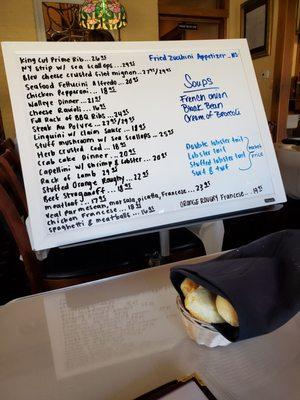 King Cut Prime Rib
NY Strip w/ Sea Scallops
Bleu cheese crusted filet mignon
Seafood Fettucini Alfredo
Chicken Pepperoni
Walleye Dinner
Cheese Ravioli
Full Rack of BBQ Ribs
Steak Au Poivre
Linguini w/ Clam Sauce
Stuff mushroom w/ sea scallops
Herb Crusted Cod
Crab cake Dinner
Capellini w/ Shrimp & Lobster
Rack of Lamb
Stuffed Orange Roughy
Beef Stroganoff
meatloaf
Veal parmesan, marsala, picatta, Francese
Chicken Francese
spaghetti & meatballs
Fried Zucchini Appetizer
Soups
French onion
Black Bean
Cream of Broccoli
Double lobster tail
Lobster tail
Stuffed lobster tail
Surf & turf
Market
Price
ORANGE ROUGHY Francese